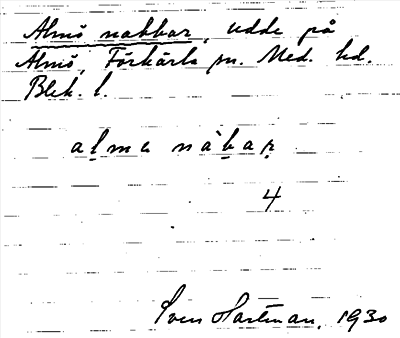 Almö nabbar, udde på
Almö, Förkärla sn. Med. hd.
Blek. l.
alme nàbar
4
Sven Hartman, 1930